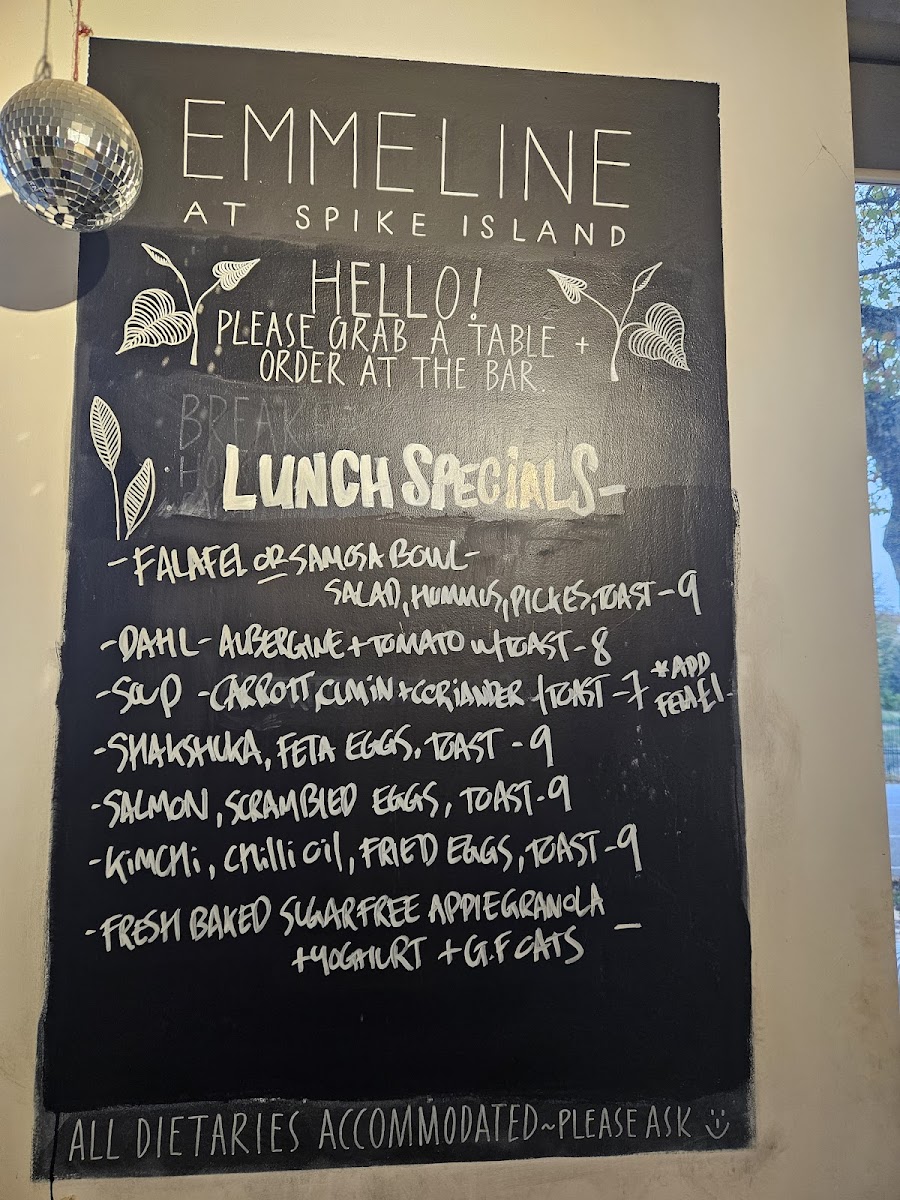 EMMELINE
AT SPIKE ISLAND
HELLO!
PLEASE GRAB A TABLE +
ORDER AT THE BAR.
BREAK
LUNCH SPECIALS-
-FALAFEL OR SAMOSA BOWL-
SALAD, HUMMUS, PICKES, TOAST-9
-DAHL- AUBERGINE+TOMATO W/TOAST-8
-SOUP -CARROTT, CUMIN+CORIANDER /TOAST-7 *ADD
FELAFEL-
-SHAKSHUKA, FETA EGGS, TOAST -9
-SALMON, SCRAMBLED EGGS, TOAST-9
-KIMCHI, CHILLI OIL, FRIED EGGS, TOAST-9
-FRESH BAKED SUGARFREE APPLEGRANOLA -
+YOGHURT +G.F OATS
ALL DIETARIES ACCOMMODATED~PLEASE ASK